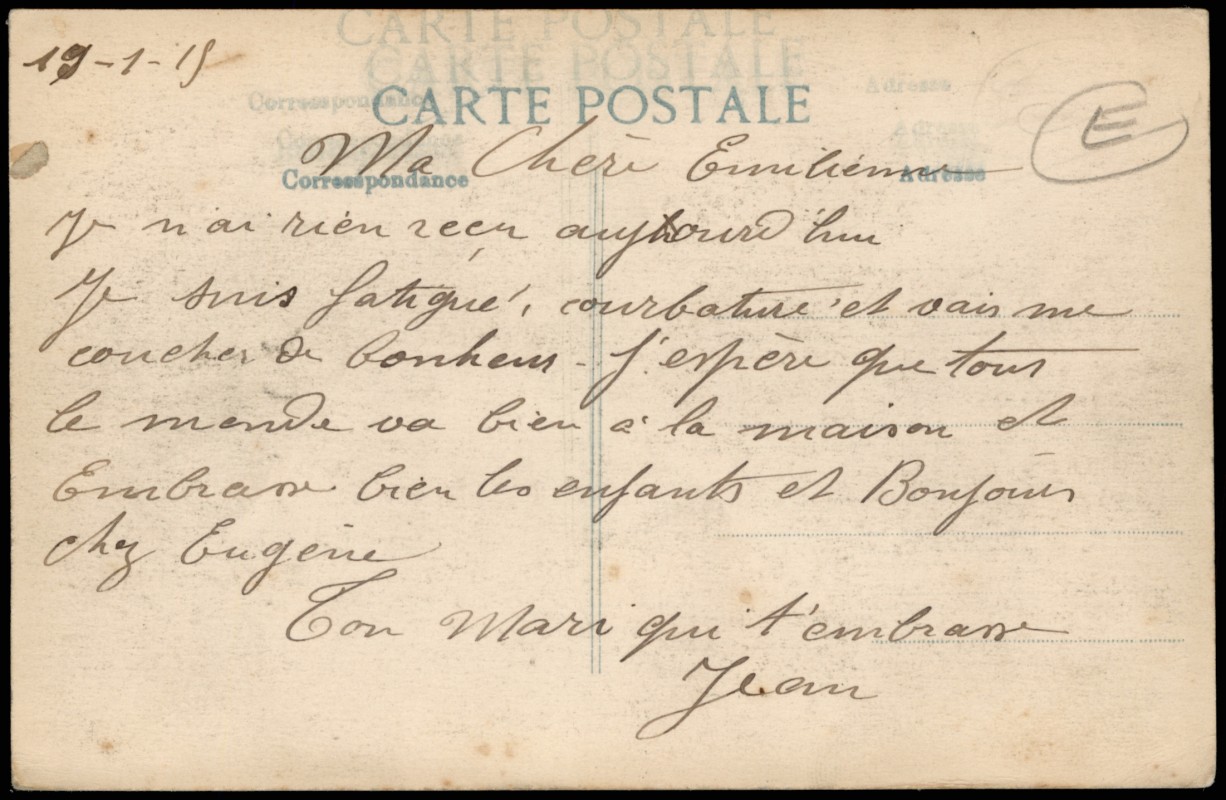 19-1-15
CARTE POSTALE
CARTE POSTALE
CARTE POSTALE
Correspondance
Adresse
Correspondance
Adresse
Correspondance
Adresse
E
Ma Chère Emilienne
Je n'ai rien reçu aujourd'hui
Je suis fatigué, courbaturé et vais me
coucher de bonheur - J'espère que tout
le monde va bien à la maison et
Embrasse bien les enfants et Bonjour
chez Eugénie
Ton Mari qui t'embrasse
Jean